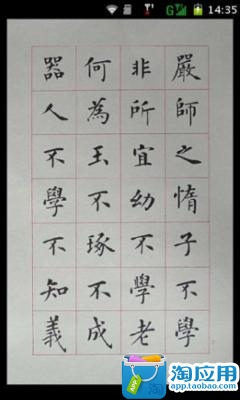 14:35
嚴師之惰子不學
非所宜幼不學老
何為玉不琢不成
器人不學不知義
淘应用
app.taobao.com